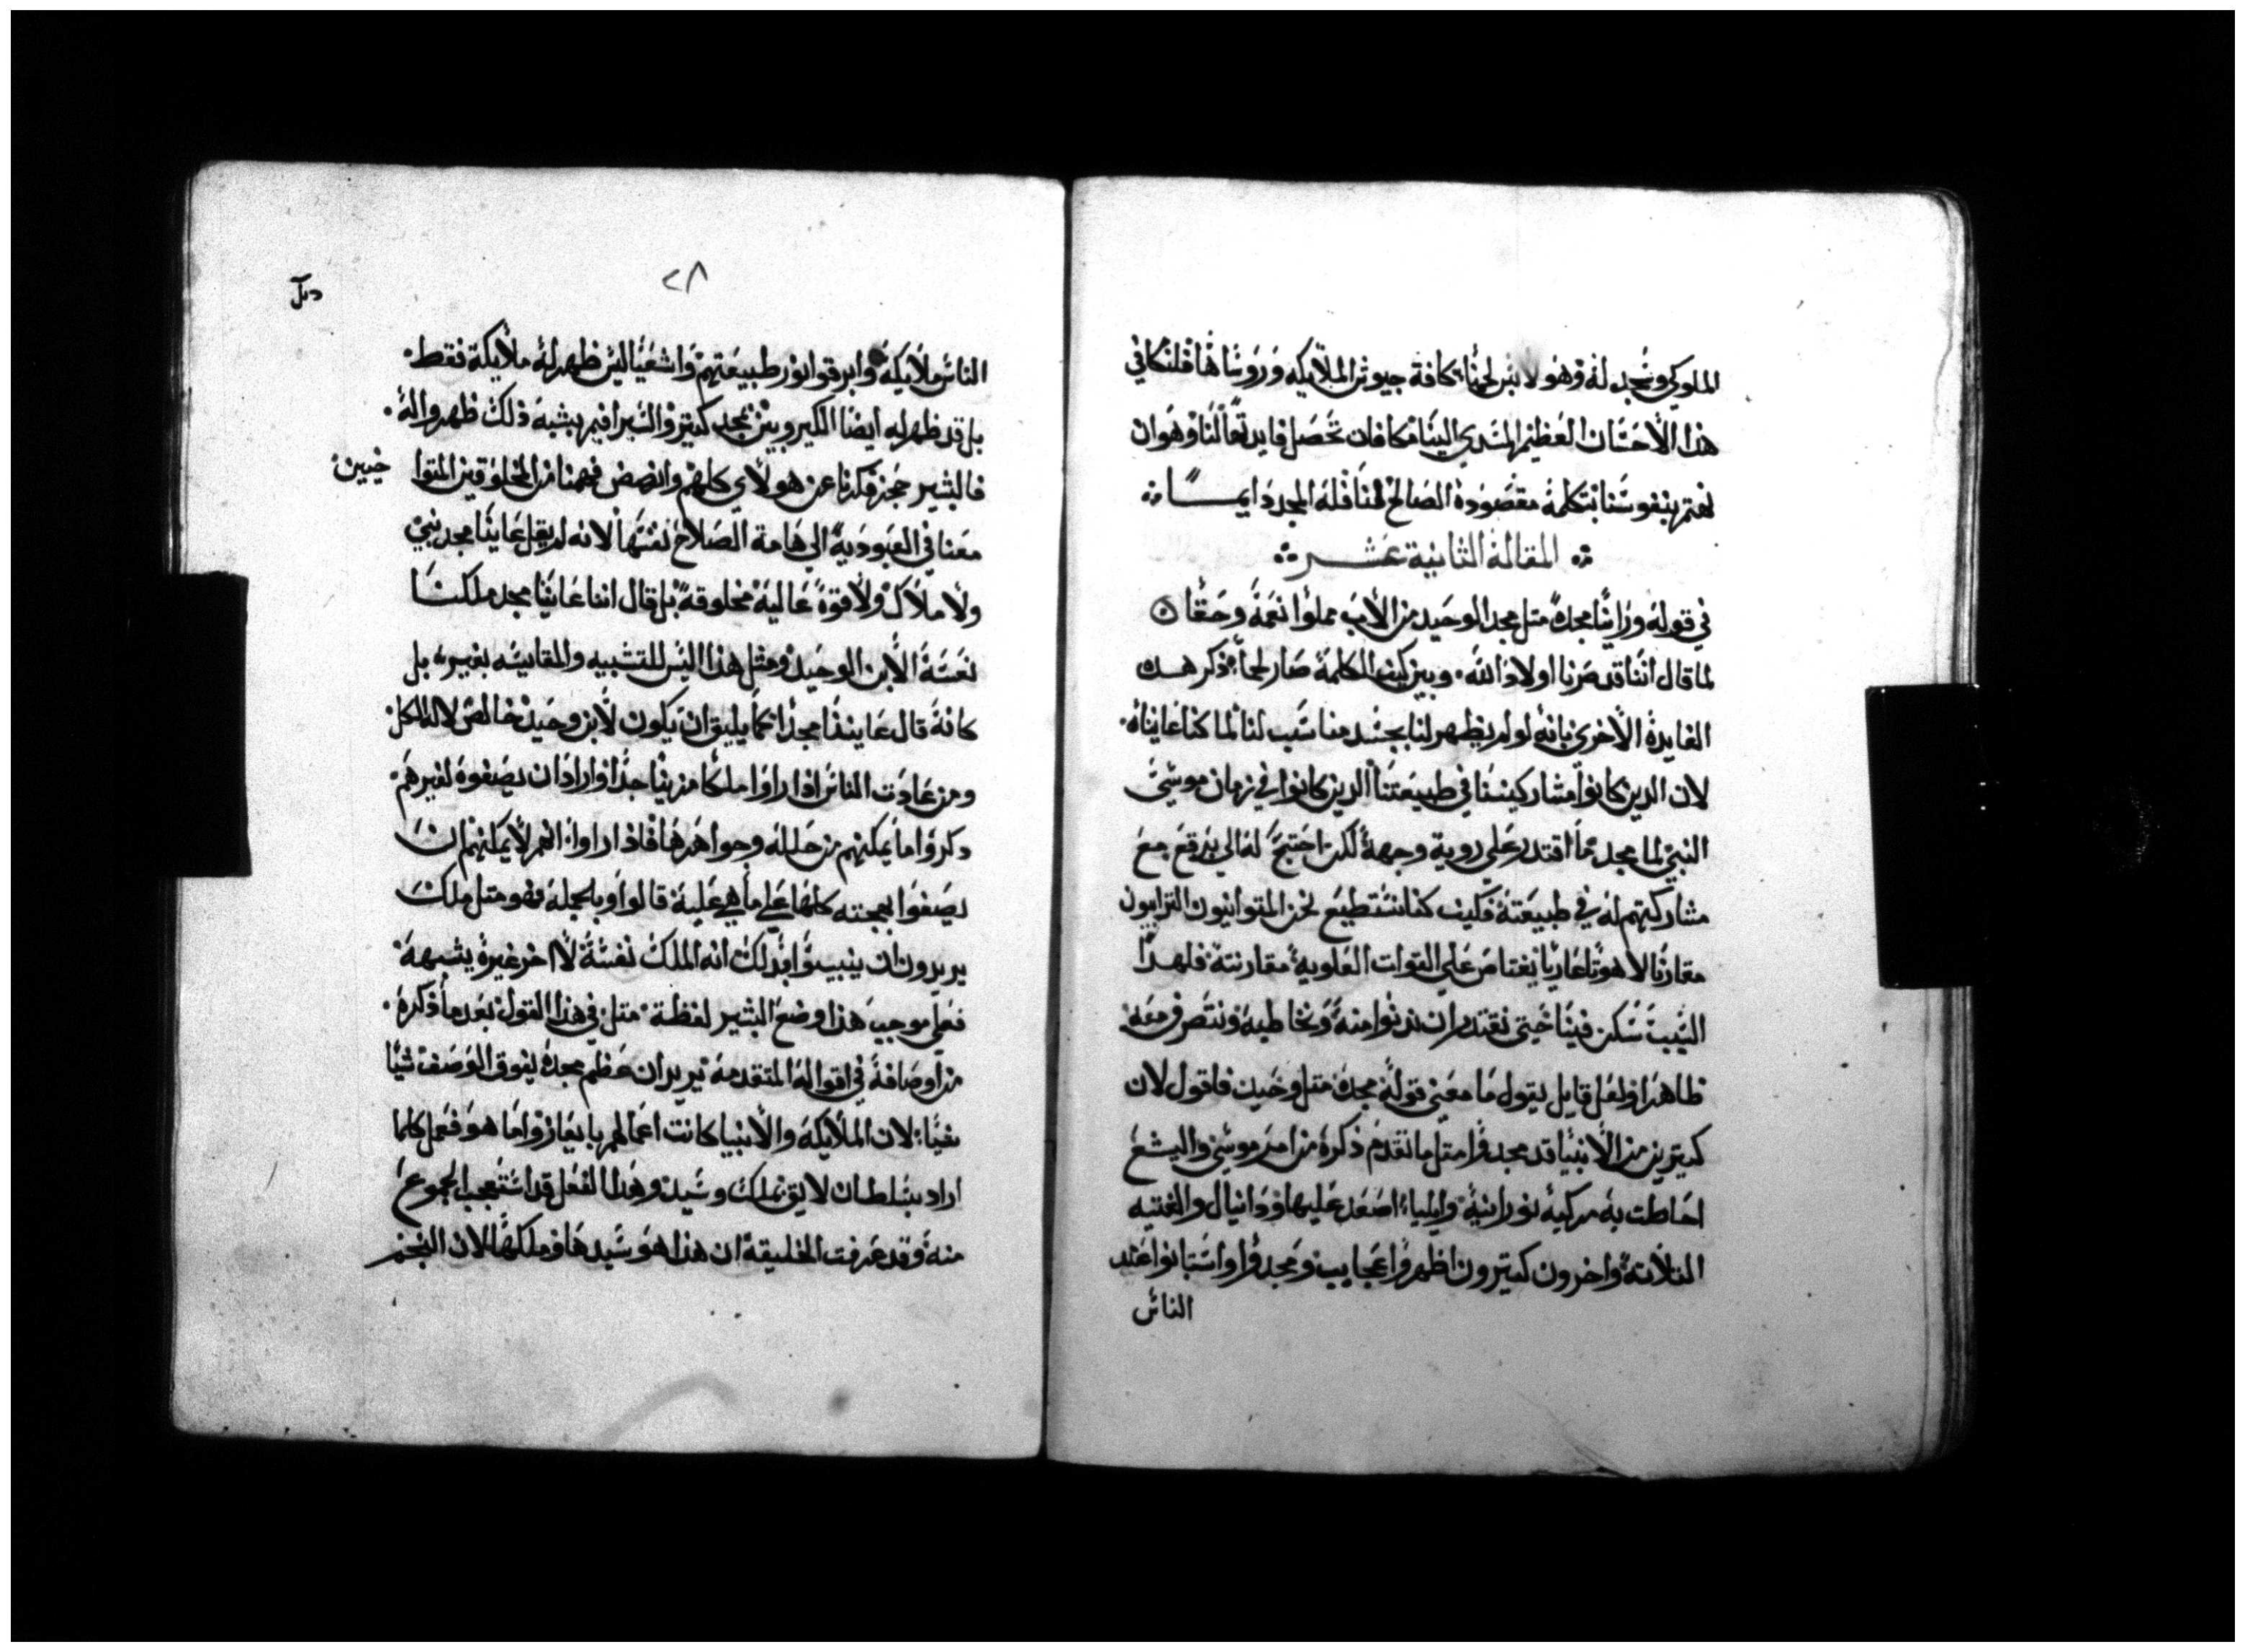 الملوكي ونسجد له وهو لابس لحمنا كافة جيوش الملايكه وروساها فلنكافي
هذا الاحسان العظيم المسدي الينا مكافاه تحصل فايدتها لنا وهو ان
نهتم بنفوسنا بتكلمة مقصودة الصالح لننا فله المجد دايمـــا
المقالة الثانية عشــر
في قوله وراينا مجده مثل مجد الوحيد من الاب مملوا نعمة وحقا
لما قال اننا قد صرنا اولاد الله وبين كيف الكلمة صار لحما ذكر هـذه
الفايدة الاخري بانه لو لم يظهر لنا بجسد مناسب لنا لما كنا عايناه
لان الدين كانوا مشاركيننا في طبيعتنا الدين كانوا في زمان موسي
النبي لما مجد ما اقتدر علي روية وجهه لكن احتيج له الي برقع مع
مشاركتهم له في طبيعته فكيف كنا نستطيع نحن المتوانيون الترابيون
مقارنا لاهوتا عاريا يغتاص علي القوات العلوية مقارنته فلهدا
السبب سكن فينا حتي نقتدر ان ندنوا منه ونخاطبه ونتصرف معه
ظاهرا ولعل قايل يقول ما معني قوله مجده مثل وحيد فاقول لان
كتيرين من الانبيا قد مجدوا مثل ما تقدم ذكره من امر موسي واليشع
احاطت به مركبه نورانية وايلياء اصعد عليها ودانيال والفتيه
التلاتة واخرون كتيرون اظهروا عجايب ومجدوا واستبانوا عند
الناس
٢٨
الناس ملايكه وابرقوا نور طبيعتهم واشعيا ليس ظهر له ملايكة فقط
بل قد ظهر له ايضا الكيروبيين بمجد كتير والسيرافيم بشبه ذلك ظهروا له
فالبشير حجز فكرنا عن هولاي كلهم وانهض فهمنا من المخلوقين المتوا
خيين
معنا في العبودية الي هامة الصلاح نفسها لانه لم يقل عاينا مجد نبي
ولا ملاك ولا قوة عالية مخلوقة بل قال اننا عاينا مجد ملكنـا
نفسه الابن الوحيد ومثل هذا ليس للتشبيه والمقايسه بغيره بل
كانه قال عايننا مجدا كما يليق ان يكون لابن وحيد خالص لاله الكل
ومن عادت الناس اذا راوا ملكا مزينا جدا وارادا ان يصفوه لغيرهم
دكروا ما يمكنهم من حلله وجواهرها فاذا راوا انهم لا يمكنهم ان
يصفوا بهجته كلها علي ما هي عليه قالوا وبالجملة فهو متل ملك
يريدون ان يبينوا بدلك انه الملك نفسه لا اخر غيره يشبهه
فعلي موجب هذا وضع البشير لفظة متل في هذا القول بعد ما ذكره
من اوصافه في اقواله المتقدمة يريد ان عظم مجده يفوق الوصف شيا
شيا لان الملايكه والانبيا كانت اعمالهم بايعاز واما هو ففعل كلما
اراد بسلطان لايق بملك وسيد وهذا الفعل قد استعجب الجموع
منه وقد عرفت الخليقة ان هذا هو سيدها وملكها لان النجم